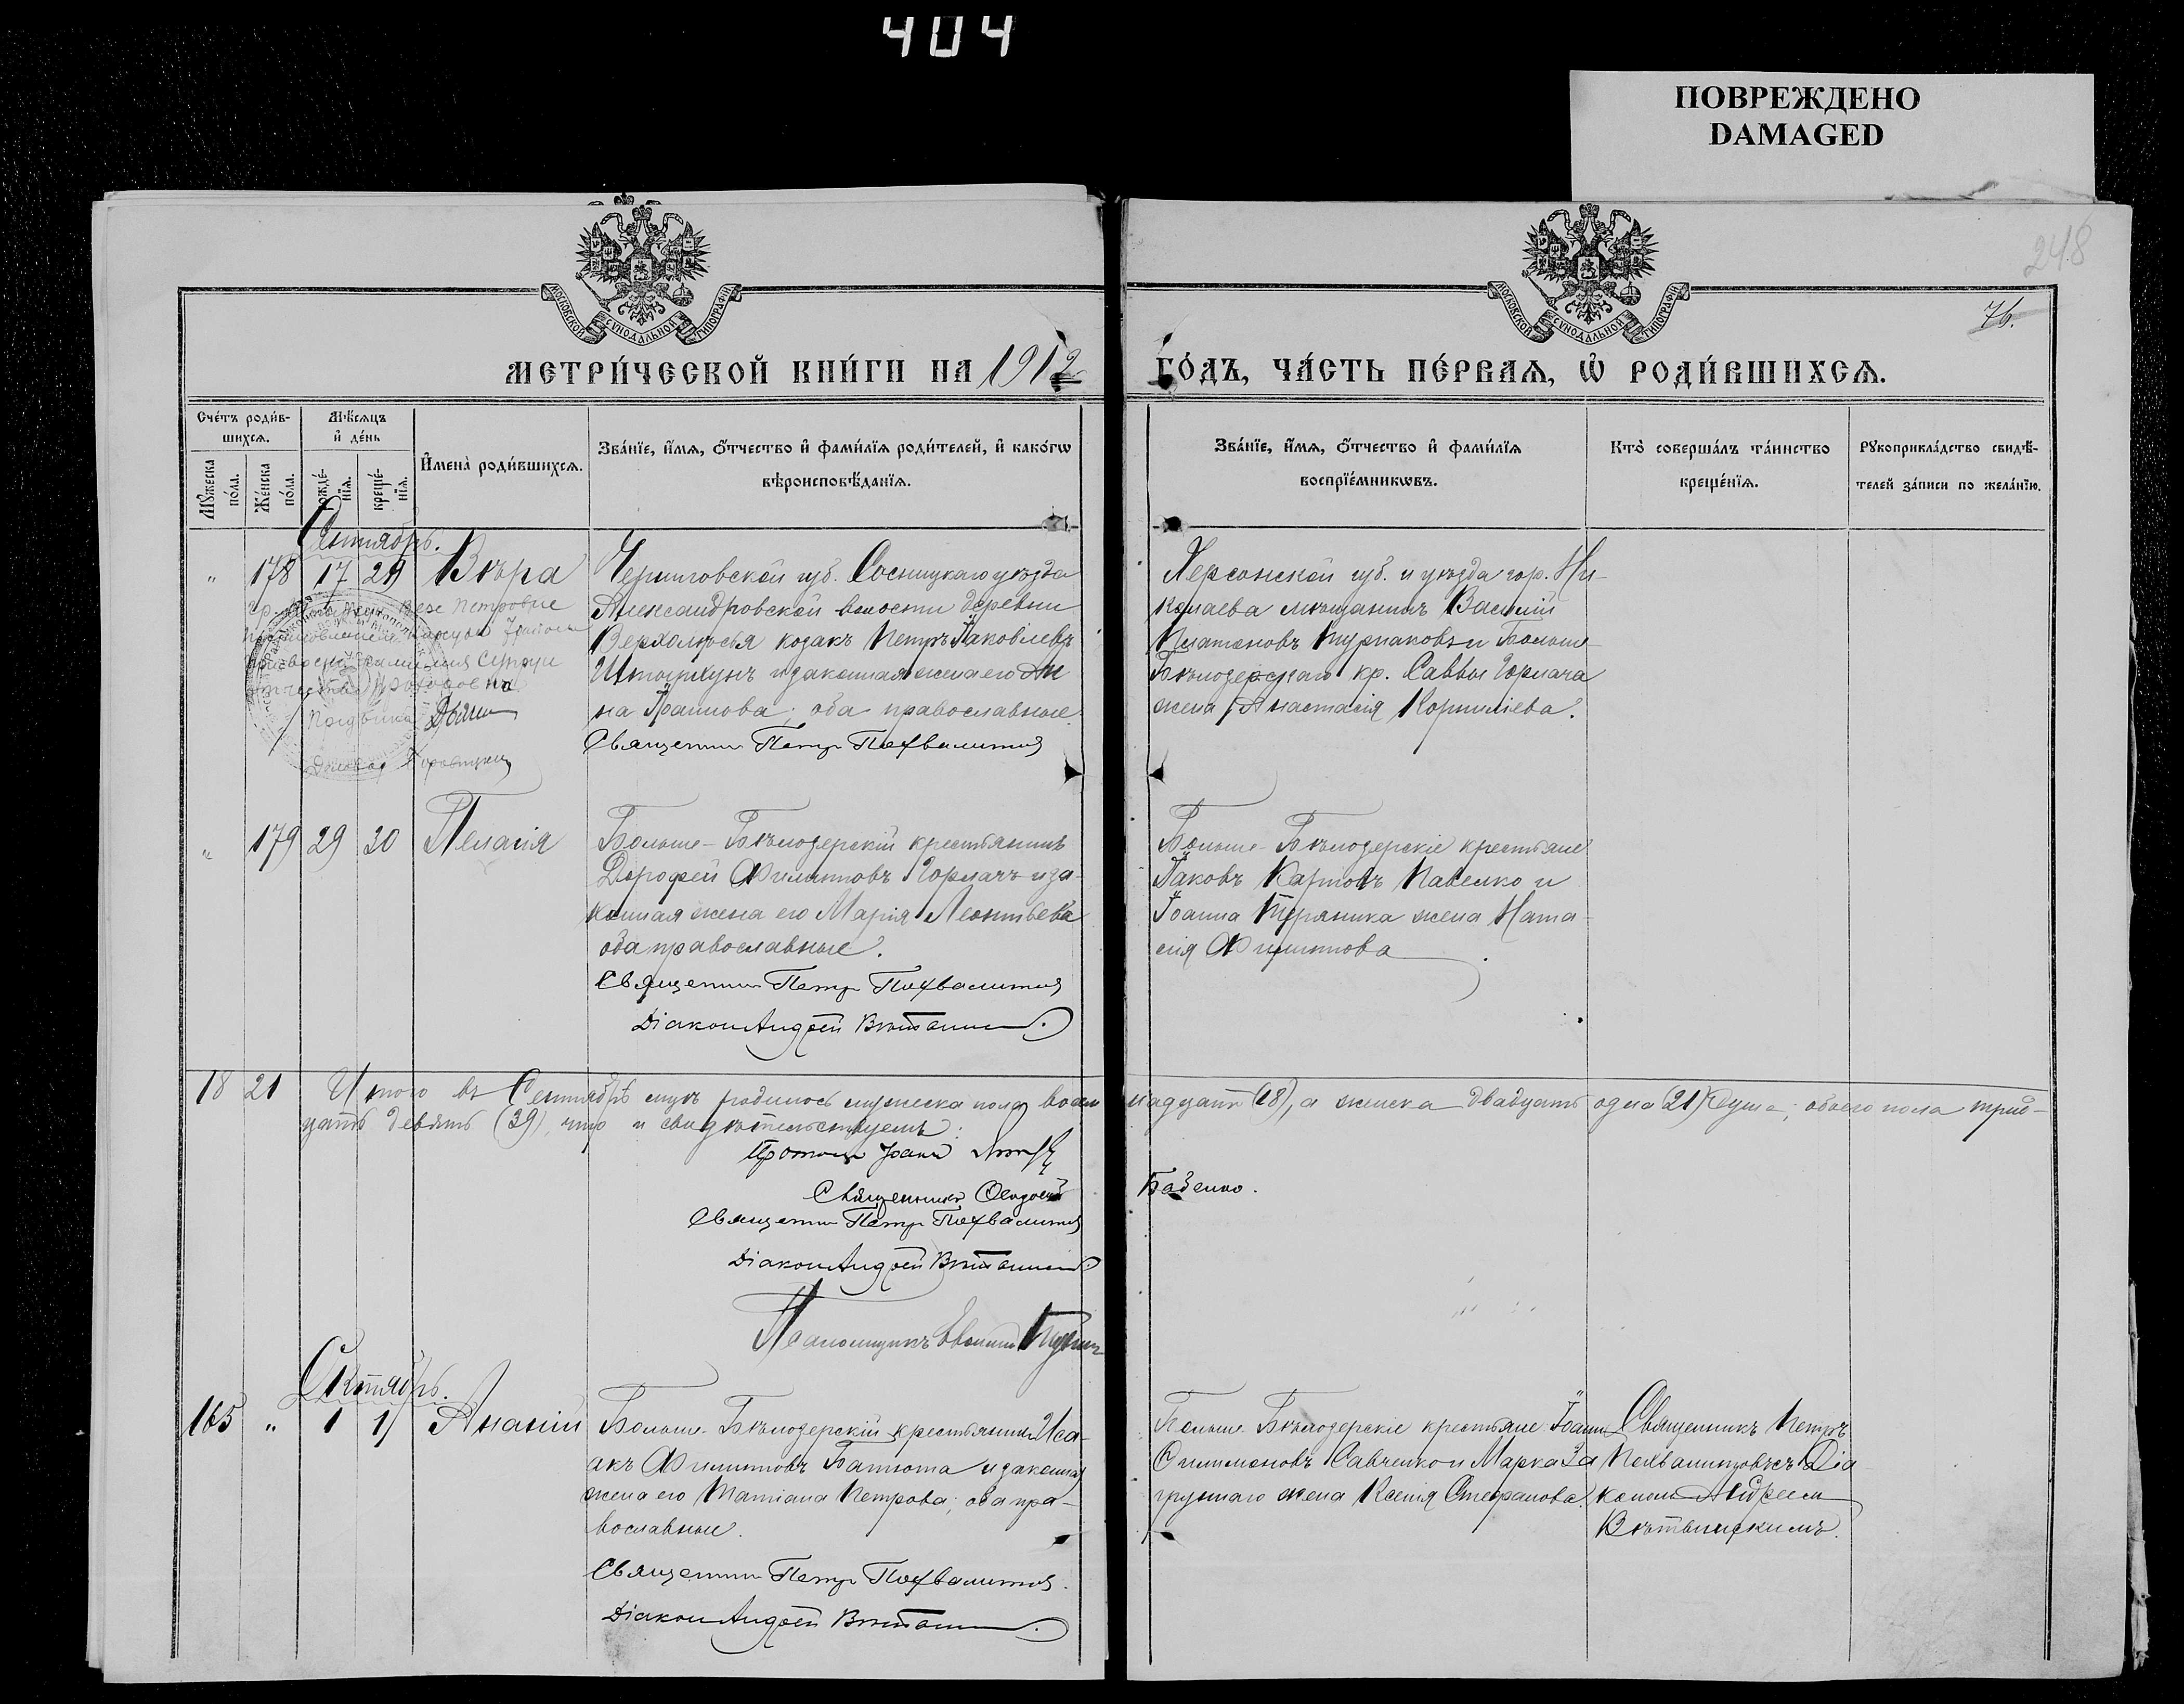 404
ПОВРЕЖДЕНО
DAMAGED
248
76.
МОСКОВСКОЙ СѴНОДАЛЬНОЙ ТИПОГРАФІИ
МОСКОВСКОЙ СѴНОДАЛЬНОЙ ТИПОГРАФІИ
МЕТРИ́ЧЕСКОЙ КНИ́ГИ НА 1912
ГО́ДЪ, ЧА́СТЬ ПЕ́РВАЯ, Ѡ҆ РОДИ́ВШИХСЯ.
Сче́тъ роди́в-
шихся.
Мѣ́сяцъ
и҆ де́нь
Мꙋжеска
по́ла.
Же́нска
по́ла.
рожде́-
нїя.
креще́-
нїя.
И҆мена̀ роди́вшихся.
Зва́нїе, и҆́мя, ѻ҆́тчество и҆ фами́лїя роди́телей, и҆ како́гѡ
вѣроисповѣ́данїя.
Зва́нїе, и҆́мя, ѻ҆́тчество и҆ фами́лїя
воспрїе́мникѡвъ.
Кто̀ соверша́лъ та́инство
креще́нїя.
Рꙋкоприкла́дство свидѣ́-
телей за́писи по жела́нїю.
Сентябрь.
" 178 17 29 Вѣра
Черниговской губ. Сосницкаго уѣзда
Александровской волости деревни
Верхолѣсья козакъ Петръ Іаковлевъ
и законная жена его Ан
на Іоаннова; оба православные.
Священник Петр Похвалитов
Петровне
фамилия
Херсонской губ. и уѣзда гор. Ни-
колаева мѣщанинъ Василій
Платоновъ Турлаковъ и Больше-
Бѣлозерскаго кр. Саввы Горлача
жена Анастасія Корнилiева.
" 179 29 30 Пелагія
Больше-Бѣлозерскій крестьянинъ
Дорофей Филипповъ Горлачъ и за-
конная жена его Марія Леонтьева
оба православные.
Священник Петр Похвалитов
Діакон Андрей
Больше-Бѣлозерскіе крестьяне
Іаковъ Карповъ Павелко и
Іоанна жена Ната-
лія Филиппова
18 21 Итого въ Сентябрѣ мцѣ родилось мужеска пола восем
надцать (18), а женска двадцать одна (21) душа; обоего пола трид-
цать девять (39), что и свидѣтельствуемъ:
Іоанн
Священникъ Феодосій
Баденко.
Священник Петр Похвалитов
Діакон Андрей
Псаломщикъ
Октябрь.
165 " 1 1 Ананій
Больше-Бѣлозерскій крестьянинъ Иса-
акъ Филипповъ Батюта и законная
жена его Татіана Петрова; оба пра-
вославные.
Священник Петр Похвалитов.
Діакон Андрей
Больше-Бѣлозерскіе крестьяне Іоаннъ
Филимоновъ Савченко и Марка За
грузнаго жена Ксенія Стефанова.
Священникъ Петръ
Похвалитовъ съ Діа-
кономъ Андреем
Вѣтвинскимъ.